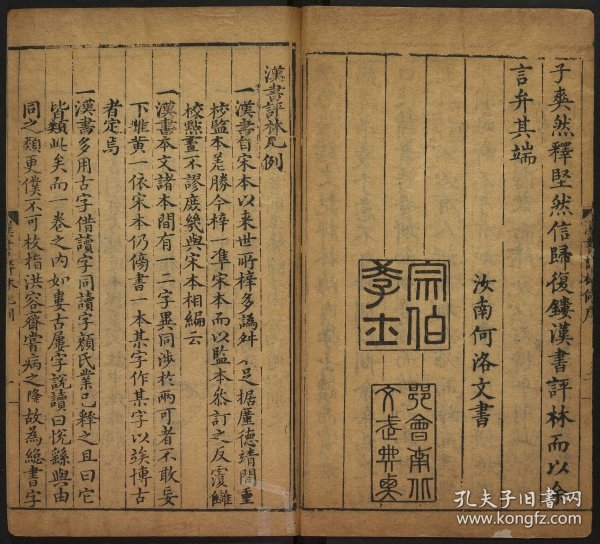 子奭然釋堅然信歸復鏤漢書評林而以余
言弁其端
汝南何洛文書
宗伯
學士
漢書評林凡例
一漢書自宋本以来世所梓多譌舛不足據廑德靖間重
校監本差勝今梓一準宋本而以監本叅訂之反覆讎
校點畫不謬庶幾與宋本相編云
一漢書本文諸本間有一二字異同涉於兩可者不敢妄
下雌黄一依宋本仍傍書一本某字作某字以竢博古
者定焉
一漢書多用古字借讀字同讀字顔氏業已釋之且曰它
皆類此矣而一卷之内如婁古屢字説讀曰悦繇與由
同之類更僕不可枚指洪容齋嘗病之降故為總書字
孔夫子旧书网
www.kongfz.com